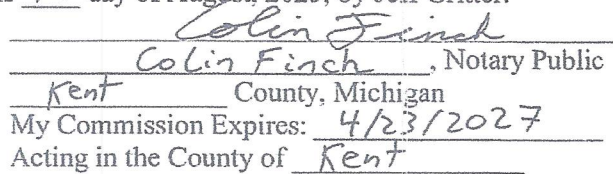 day of August, 2023, by Jeff
Colin Finch
Colin Finch, Notary Public
Kent County, Michigan
My Commission Expires: 4/23/2027
Acting in the County of Kent